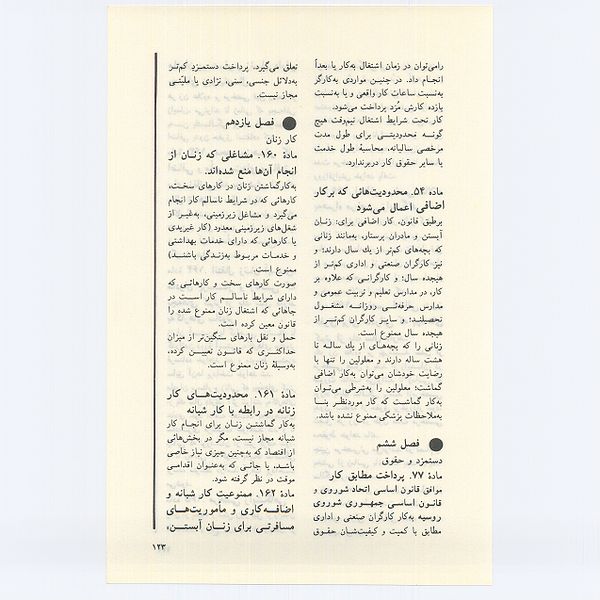 رامی‌توان در زمان اشتغال به‌کار یا بعداً
انجام داد. در چنین مواردی به‌کارگر
به‌نسبت ساعات کار واقعی و یا به‌نسبت
بازده کارش مُزد پرداخت می‌شود.
کار تحت شرایط اشتغال نیم‌وقت هیچ
گونه محدودیتی برای طول مدت
مرخصی سالیانه، محاسبهٔ طول خدمت
یا سایر حقوق کار دربرندارد.
ماده ۵۴. محدودیت‌هائی که برکار
اضافی اعمال می‌شود
برطبق قانون، کار اضافی برای: زنان
آبستن و مادران پرستار، به‌مانند زنانی
که بچه‌های کم‌تر از یك سال دارند؛ و
نیز کارگران صنعتی و اداری کم‌تر از
هیجده سال؛ و کارگرانی که علاوه بر
کار، در مدارس تعلیم و تربیت عمومی و
مدارس حرفه‌ئی روزانه مشغول
تحصیلند؛ و سایر کارگران کم‌تر از
هیجده سال ممنوع است.
زنانی را که بچه‌های از یك ساله تا
هشت ساله دارند و معلولین را تنها با
رضایت خودشان می‌توان به‌کار اضافی
گماشت؛ معلولین را به‌شرطی می‌توان
به‌کار گماشت که کار موردنظر بنا
به‌ملاحظات پزشکی ممنوع نشده باشد.
● فصل ششم
دستمزد و حقوق
مادهٔ ۷۷. پرداخت مطابق کار
موافق قانون اساسی اتحاد شوروی و
قانون اساسی جمهوری شوروی
روسیه به‌کار کارگران صنعتی و اداری
مطابق با کمیت و کیفیت‌شان حقوق
تعلق می‌گیرد. پرداخت دستمزد کم‌تر
به‌دلائل جنسی، سنی، نژادی یا ملیّتی
مجاز نیست.
● فصل یازدهم
کار زنان
مادهٔ ۱۶۰. مشاغلی که زنان از
انجام آن‌ها منع شده‌اند.
به‌کارگماشتن زنان در کارهای سخت،
کارهائی که در شرایط ناسالم کار انجام
می‌گیرد و مشاغل زیرزمینی، به‌غیر از
شغل‌های زیرزمینی معدود (کار غیریدی
یا کارهائی که دارای خدمات بهداشتی
و خدمات مربوط به‌زندگی باشند)
ممنوع است.
صورت کارهای سخت و کارهائی که
دارای شرایط ناسالم کار است در
جاهائی که اشتغال زنان ممنوع شده را
قانون معین کرده است.
حمل و نقل بارهای سنگین‌تر از میزان
حداکثری که قانون تعیین کرده،
به‌وسیلهٔ زنان ممنوع است.
مادهٔ ۱۶۱. محدودیت‌های کار
زنانه در رابطه با کار شبانه
به‌کار گماشتن زنان برای انجام کار
شبانه مجاز نیست، مگر در بخش‌هائی
از اقتصاد که به‌چنین چیزی نیاز خاصی
باشد، یا جائی که به‌عنوان اقدامی
موقت در نظر گرفته شود.
مادهٔ ۱۶۲. ممنوعیت کار شبانه و
اضافه‌کاری و مأموریت‌های
مسافرتی برای زنان آبستن،
۱۲۳